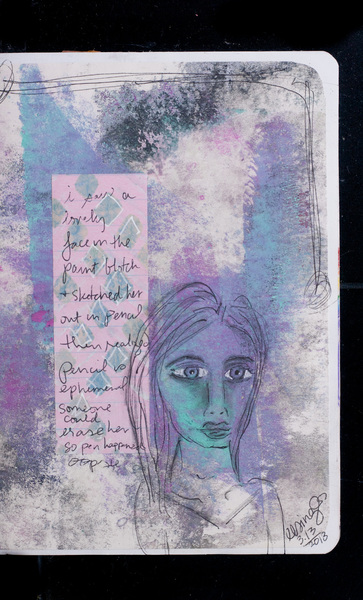 i saw a
lovely
face in the
paint blotch
+ sketched her
out in pencil
then realized
pencil is
ephemeral
someone
could
erase her
so pen happened
3.13
2013